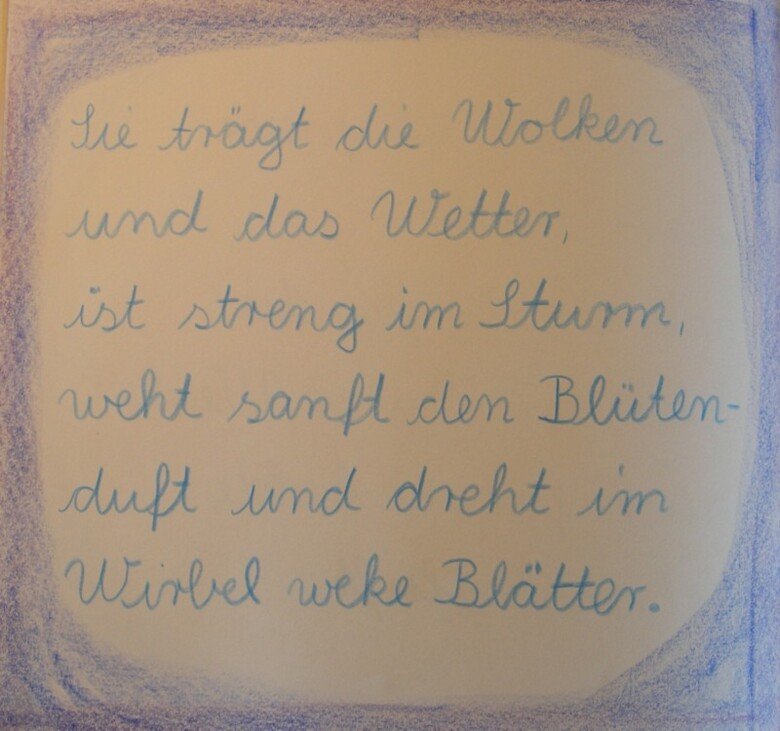 Sie trägt die Wolken
und das Wetter,
ist streng im Sturm,
weht sanft den Blüten-
duft und dreht im
Wirbel weke Blätter.